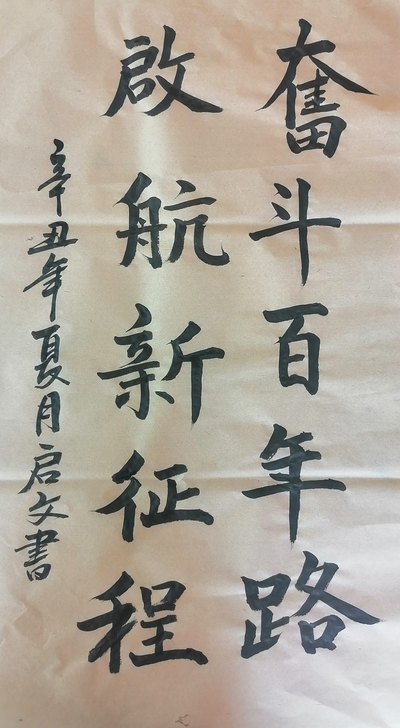 奮斗百年路
啟航新征程
辛丑年夏月启文書